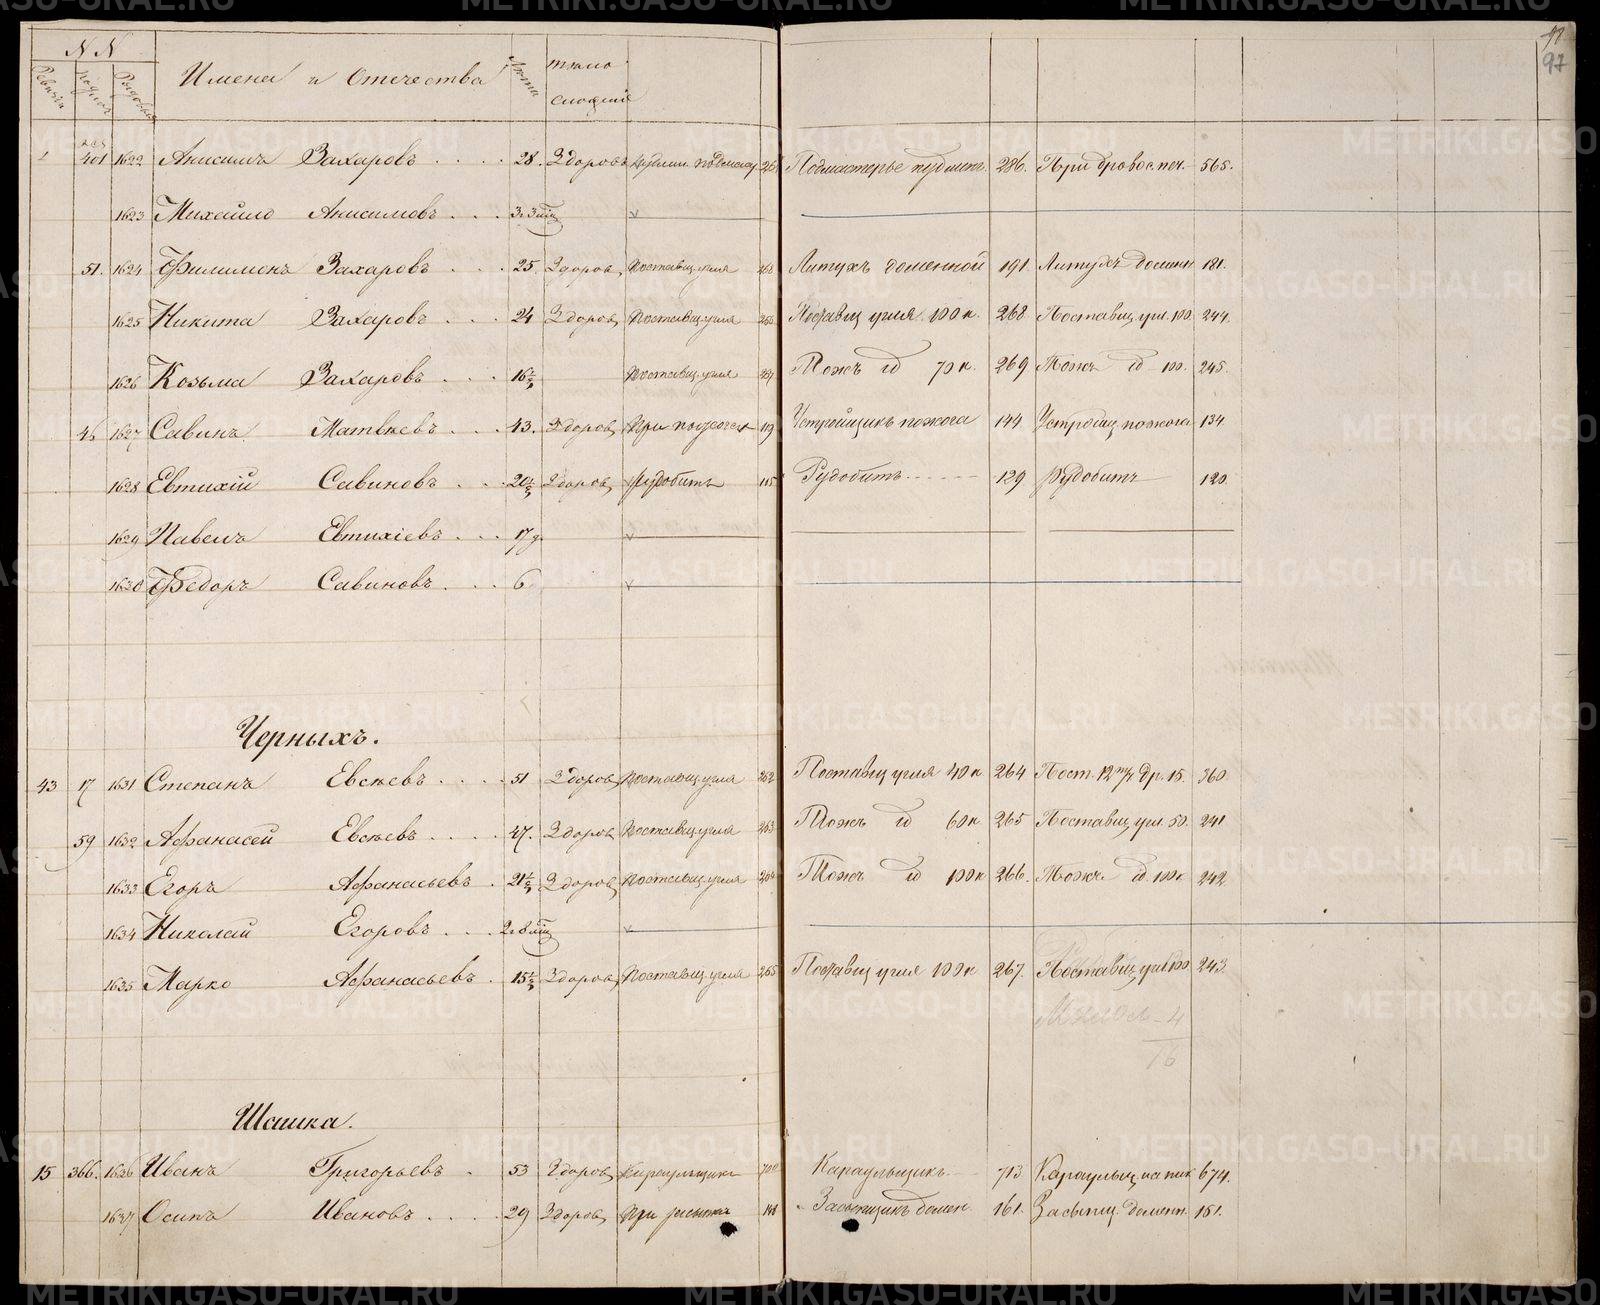 NN
Имена и Отчества Лѣта тѣло
сложенiе
97
401 1622 Анисимъ Захаровъ 28. Здоровъ Подмастерье пудлинг. 286. При дровос. печ. 565.
1623 Михайло Анисимовъ 3
51. 1624 Филимонъ Захаровъ 25. Здоровъ Поставщ. угля Литухъ доменной 191. Литухъ доменн 181.
1625 Никита Захаровъ 24 Здоровъ Поставщ. угля Поставщ угля 100 к. 268 Поставщ. угл. 100. 244.
1626 Козьма Захаровъ 16½ Поставщ. угля Тожъ id 70 к. 269 Тожъ id 100. 245.
46 1627 Савинъ Матвѣевъ 43. Здоровъ 119 Устройщикъ пожога 144 Устройщ пожога 134.
1628 Евтихiй Савиновъ 20½ Здоровъ Рудобитъ 115 Рудобитъ 129 Рудобитъ 120.
1629 Павелъ Евтихiевъ
1630 Федоръ Савиновъ 6
Черныхъ.
43 17 1631 Степанъ Евсѣевъ 51 Здоровъ Поставщ угля 262 Поставщ угля 40 к 264 Пост. 12 др. 15. 360.
59 1632 Афанасей Евсѣевъ 47. Здоровъ Поставщ угля 263 Тожъ id 60 к 265 Поставщ угл. 50. 241.
1633 Егоръ Афанасьевъ 21½ Здоровъ Поставщ. угля 264 Тожъ id 100 к 266. Тожъ id 100 к 242.
1634 Николай Егоровъ
1635 Марко Афанасьевъ 15½ Здоровъ Поставщ угля 265 Поставщ угля 100 к 267. Поставщ. угл 100. 243.
4
16
Шашка.
15 366. 1636 Иванъ Григорьевъ 53 Здоровъ Караульщикъ Караульщикъ 713 Караульщ. 674.
1637 Осипъ Ивановъ 29 Здоровъ При засыпкѣ 148 Засыпщикъ домен. 161. Засыпщ. доменн. 151.
METRIKI.GASO-URAL.RU